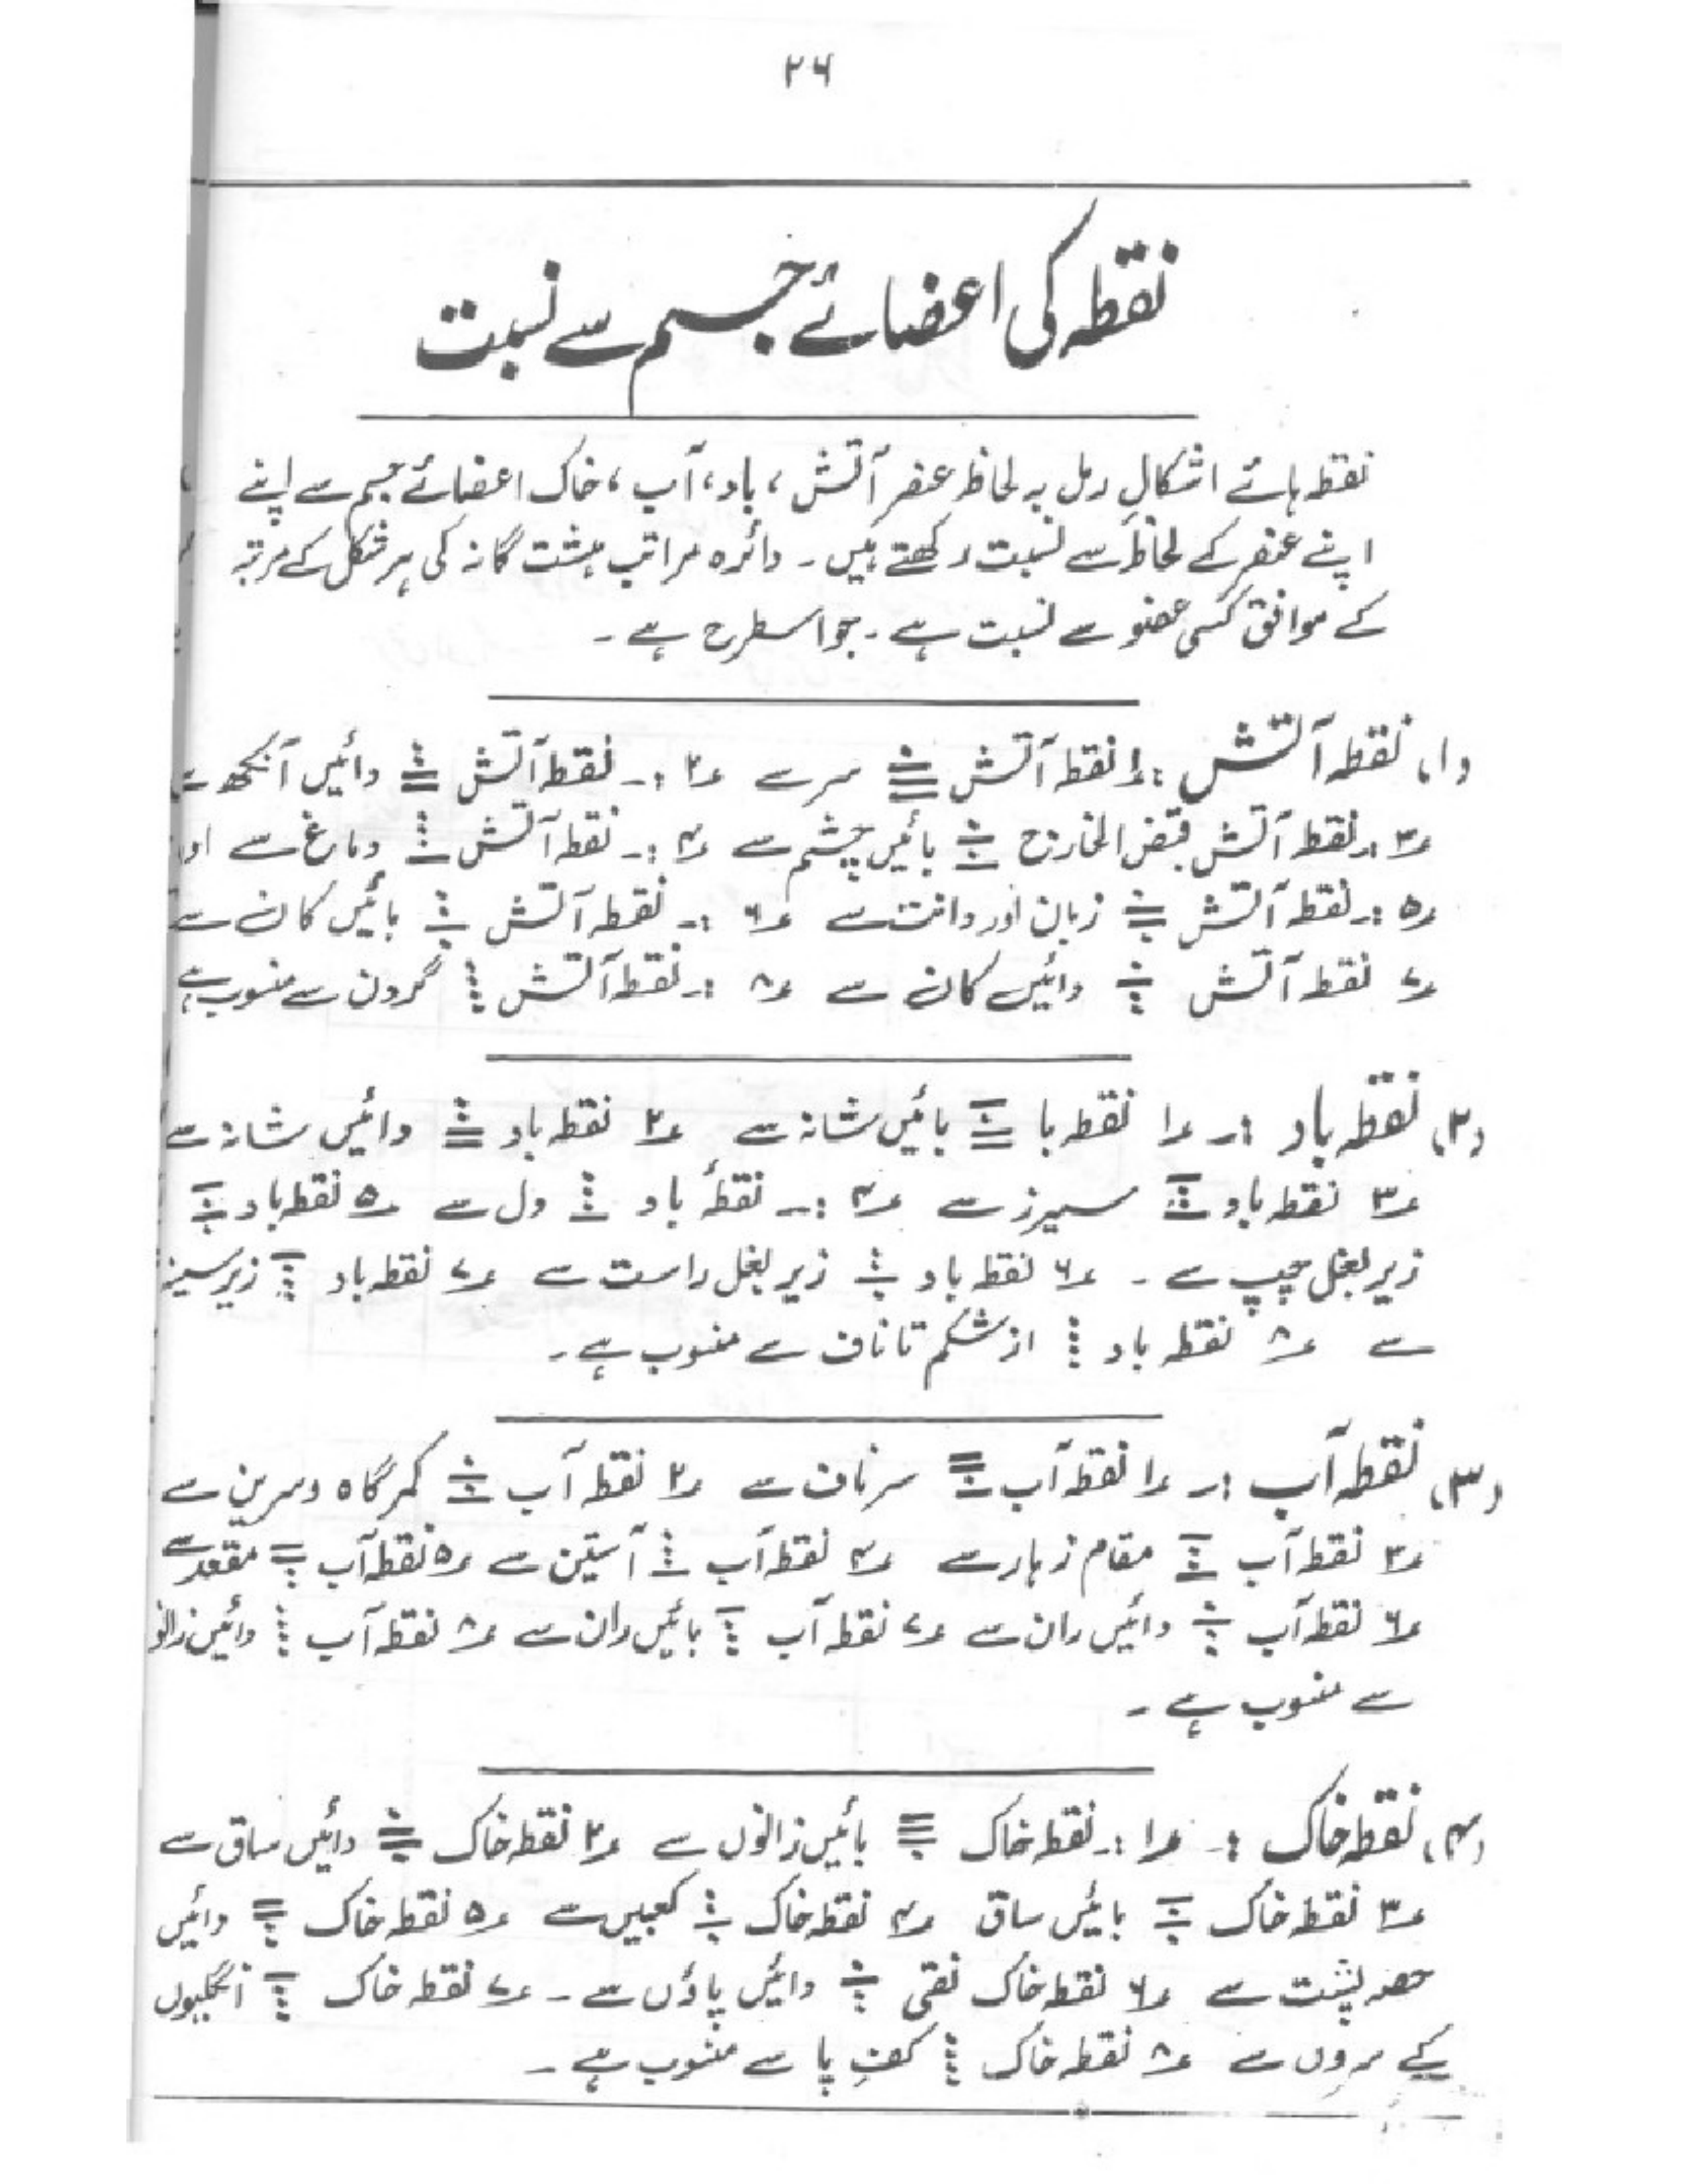 ۲۶
نقطہ کی اعضائے جسم سے نسبت
نقطہ ہائے اشکالِ رمل بہ لحاظ عنصر آتش، باد، آب، خاک اعضائے جسم سے اپنے
اپنے عنصر کے لحاظ سے نسبت رکھتے ہیں۔ دائرہ مراتب ہشت گانہ کی ہر شکل کے مرتبہ
کے موافق کسی عضو سے نسبت ہے۔ جو اسطرح ہے۔
(۱) نقطہ آتش :۱ نقطہ آتش سر سے ۲ :۔ نقطہ آتش دائیں آنکھ سے
۳ :۔ نقطہ آتش قبض الخارج بائیں چشم سے ۴ :۔ نقطہ آتش دماغ سے اور
۵ :۔ نقطہ آتش زبان اور دانت سے ۶ :۔ نقطہ آتش بائیں کان سے
۷ نقطہ آتش دائیں کان سے ۸ :۔ نقطہ آتش گردن سے منسوب ہے
(۲) نقطہ باد :۔ ۱ نقطہ با بائیں شانہ سے ۲ نقطہ باد دائیں شانہ سے
۳ نقطہ باد سپرز سے ۴ :۔ نقطۂ باد دل سے ۵ نقطہ باد
زیر بغل چپ سے ۔ ۶ نقطہ باد زیر بغل راست سے ۷ نقطہ باد زیر سینہ
سے ۸ نقطہ باد از شکم تا ناف سے منسوب ہے۔
(۳) نقطہ آب :۔ ۱ نقطہ آب سر ناف سے ۲ نقطہ آب کمر گاہ و سرین سے
۳ نقطہ آب مقام زہار سے ۴ نقطہ آب آستین سے ۵ نقطہ آب مقعد سے
۶ نقطہ آب دائیں ران سے ۷ نقطہ آب بائیں ران سے ۸ نقطہ آب دائیں زانو
سے منسوب ہے۔
(۴) نقطہ خاک :۔ ۱ :۔ نقطہ خاک بائیں زانوں سے ۲ نقطہ خاک دائیں ساق سے
۳ نقطہ خاک بائیں ساق ۴ نقطہ خاک کعبین سے ۵ نقطہ خاک دائیں
حصہ پشت سے ۶ نقطہ خاک نقی دائیں پاؤں سے ۔ ۷ نقطہ خاک انگلیوں
کے سروں سے ۸ نقطہ خاک کف پا سے منسوب ہے۔